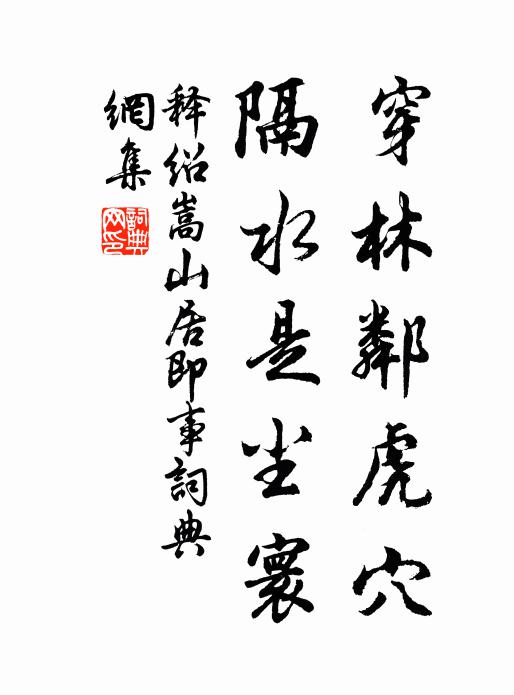 穿林鄰虎穴
隔水是尘寰
释绍嵩山居即事詞典
網集
詞典
网印